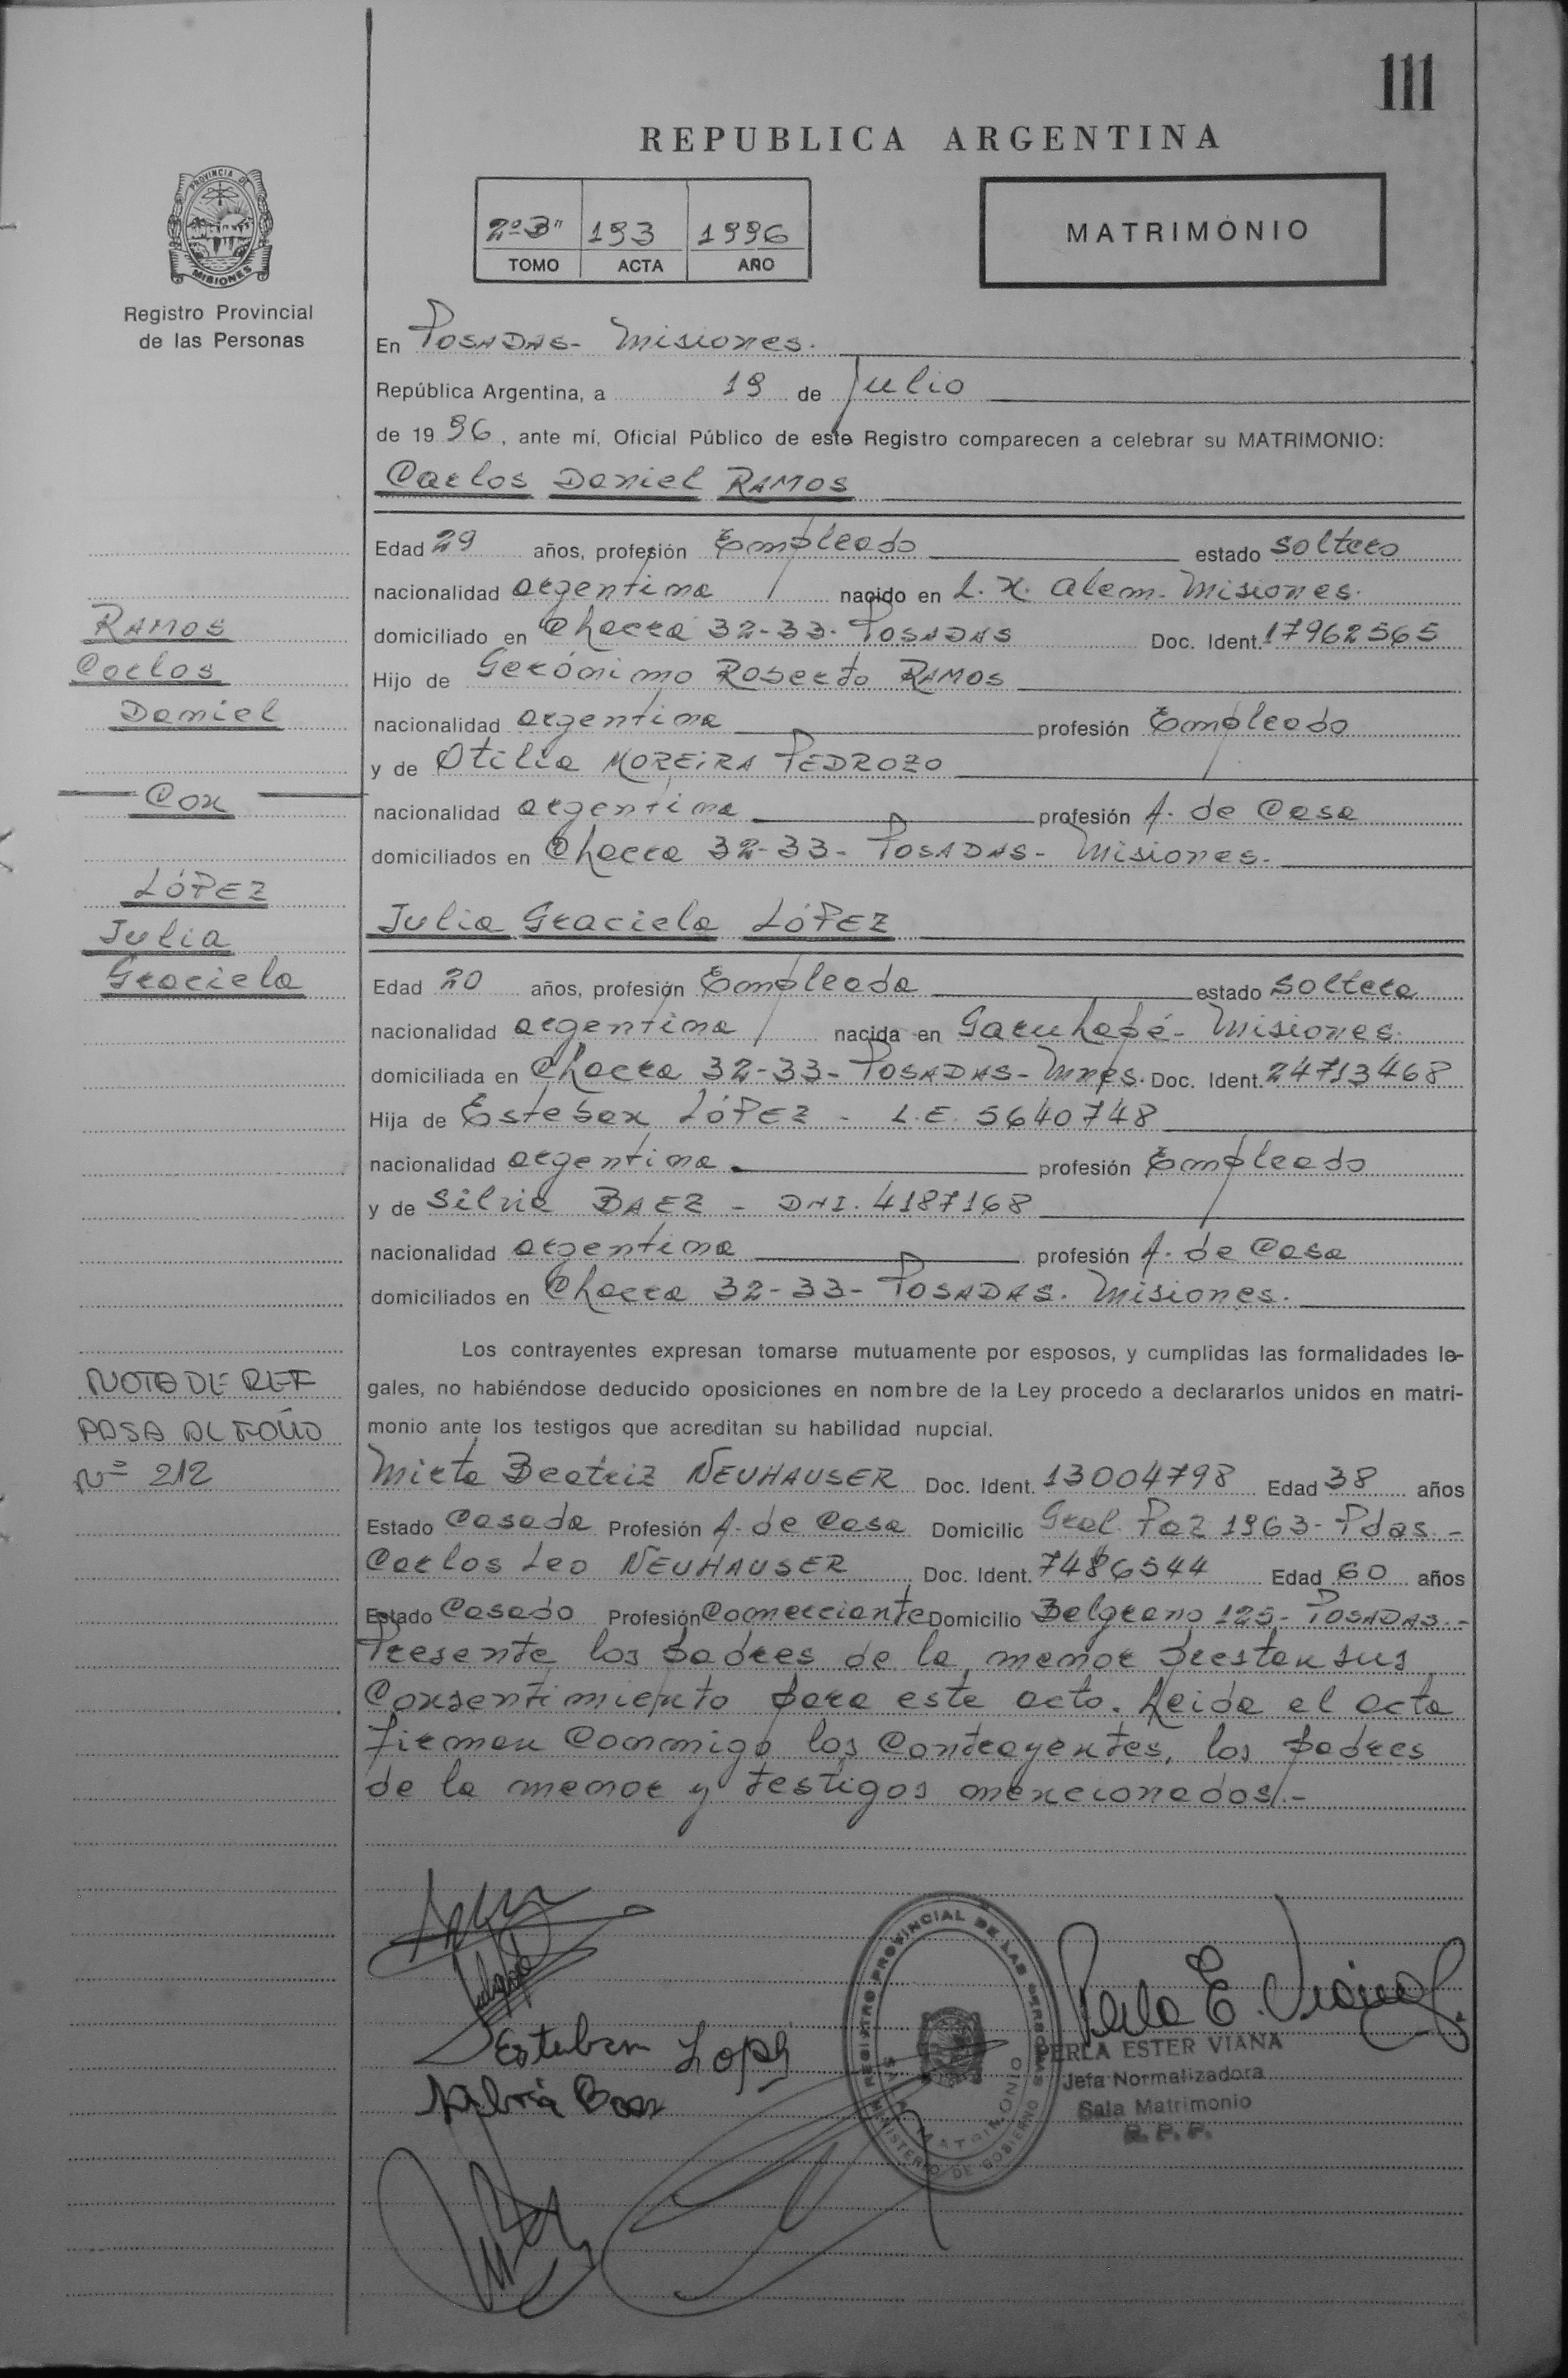 111
REPUBLICA ARGENTINA
PROVINCIA DE
MISIONES
Registro Provincial
de las Personas
2º3" 193 1996
TOMO ACTA AÑO
MATRIMONIO
En POSADAS- Misiones.
República Argentina, a 19 de Julio
de 1996, ante mí, Oficial Público de este Registro comparecen a celebrar su MATRIMONIO:
Carlos Daniel RAMOS
Edad 29 años, profesión Empleado estado soltero
nacionalidad argentina nacido en L. N. Alem- Misiones.
domiciliado en Chacra 32-33- POSADAS Doc. Ident. 17962565
Hijo de Gerónimo Roberto RAMOS
nacionalidad argentina profesión Empleado
y de Otilia MOREIRA PEDROZO
nacionalidad argentina profesión A. de Casa
domiciliados en Chacra 32-33- POSADAS- Misiones.
Julia Graciela LÓPEZ
Edad 20 años, profesión Empleada estado soltera
nacionalidad argentina nacida en Garuhapé- Misiones.
domiciliada en Chacra 32-33- POSADAS- Mnes. Doc. Ident. 24713468
Hija de Esteban LÓPEZ - L.E. 5640748
nacionalidad argentina profesión Empleado
y de Silvia BAEZ - DNI. 4187168
nacionalidad argentina profesión A. de Casa
domiciliados en Chacra 32-33- POSADAS. Misiones.
Los contrayentes expresan tomarse mutuamente por esposos, y cumplidas las formalidades le-
gales, no habiéndose deducido oposiciones en nombre de la Ley procedo a declararlos unidos en matri-
monio ante los testigos que acreditan su habilidad nupcial.
Mirta Beatriz NEUHAUSER Doc. Ident. 13004798 Edad 38 años
Estado Casada Profesión A. de Casa Domicilio Gral. Paz 1963- Pdas.-
Carlos Leo NEUHAUSER Doc. Ident. 7486544 Edad 60 años
Estado Casado Profesión Comerciante Domicilio Belgrano 125- POSADAS.-
Presente los padres de la menor prestan sus
Consentimiento para este acto. Leida el acta
firman Conmigo los Contrayentes, los padres
de la menor y testigos mencionados.-
RAMOS
Carlos
Daniel
Con
LÓPEZ
Julia
Graciela
NOTA DE REF
PASA AL FOLIO
Nº 212
Esteban Lopez
Silvia Baez
REGISTRO PROVINCIAL DE LAS PERSONAS
MATRIMONIO
MINISTERIO DE GOBIERNO
Perla E. Viana
PERLA ESTER VIANA
Jefa Normalizadora
Sala Matrimonio
R. P. P.